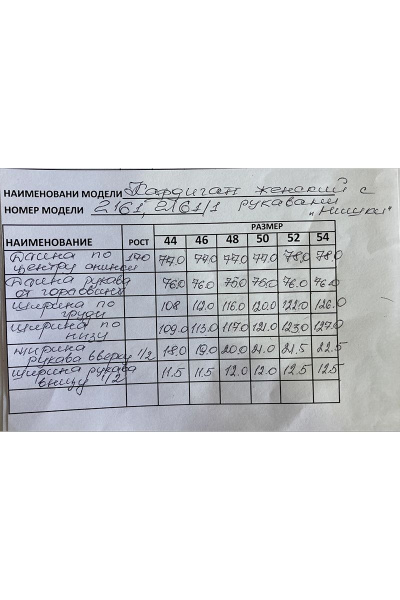 НАИМЕНОВАНИ МОДЕЛИ Кардиган женский с
НОМЕР МОДЕЛИ 2161, 2161/1 рукавами
НАИМЕНОВАНИЕ РОСТ РАЗМЕР
44 46 48 50 52 54
Длина по 170 77.0 77.0 77.0 77.0 78.0 78.0
центру спинки
Длина рукава 76.0 76.0 76.0 76.0 76.0 76.0
от горловины
ширина по 108 112.0 116.0 120.0 122.0 126.0
груди
ширина по 109.0 113.0 117.0 121.0 123.0 127.0
низу
ширина 18.0 19.0 20.0 21.0 21.5 22.5
рукава вверху 1/2
ширина рукава 11.5 11.5 12.0 12.0 12.5 12.5
внизу 1/2